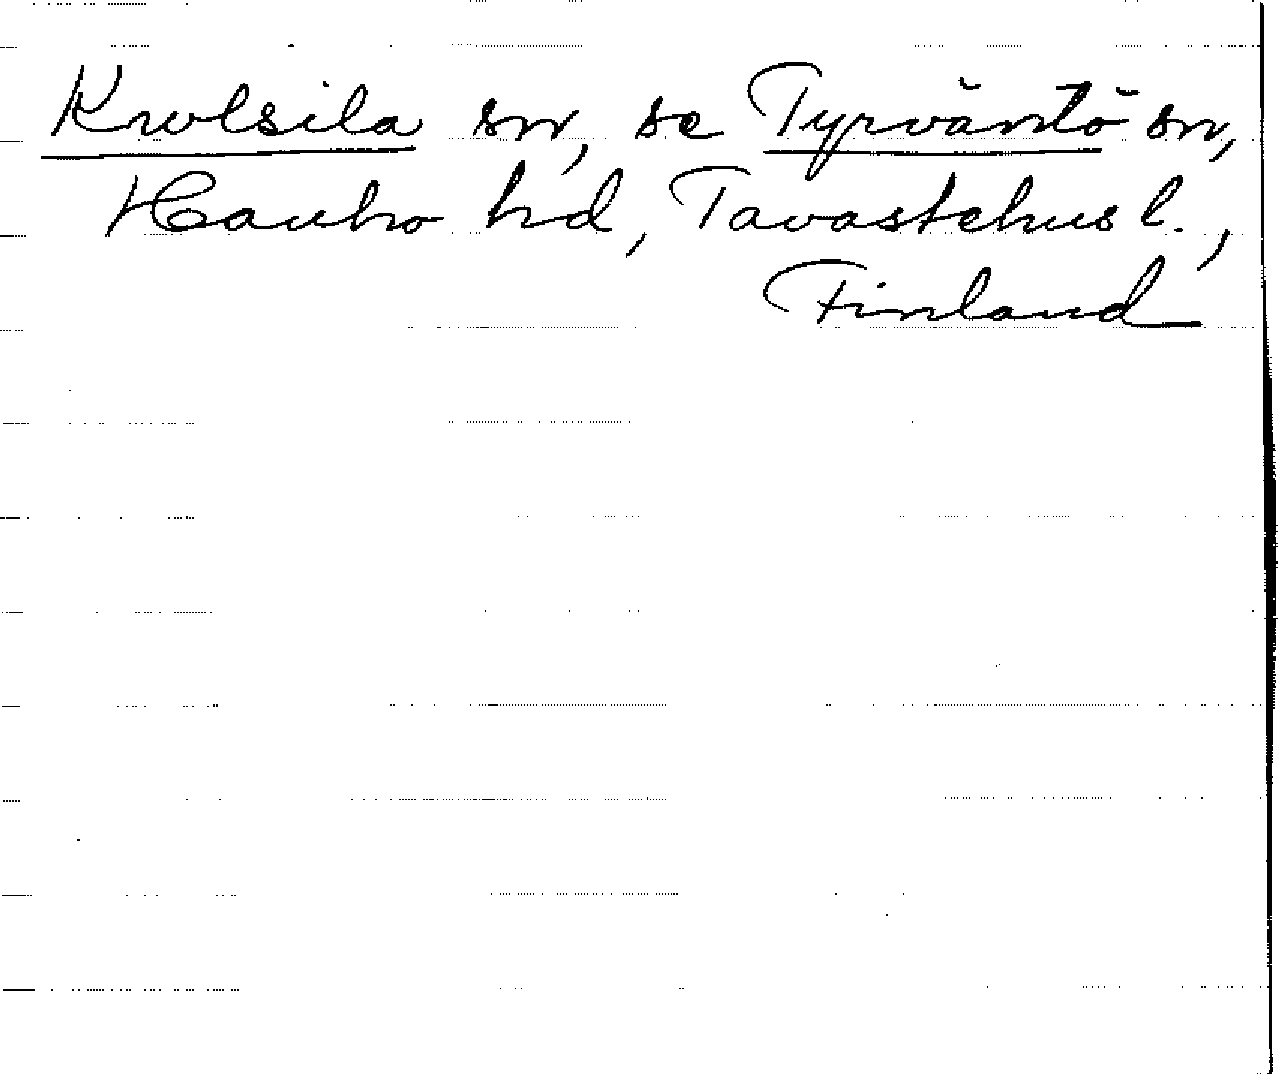 Krolsila sn, se Tyrväntö sn,
Hauho hd, Tavastehus l.,
Finland